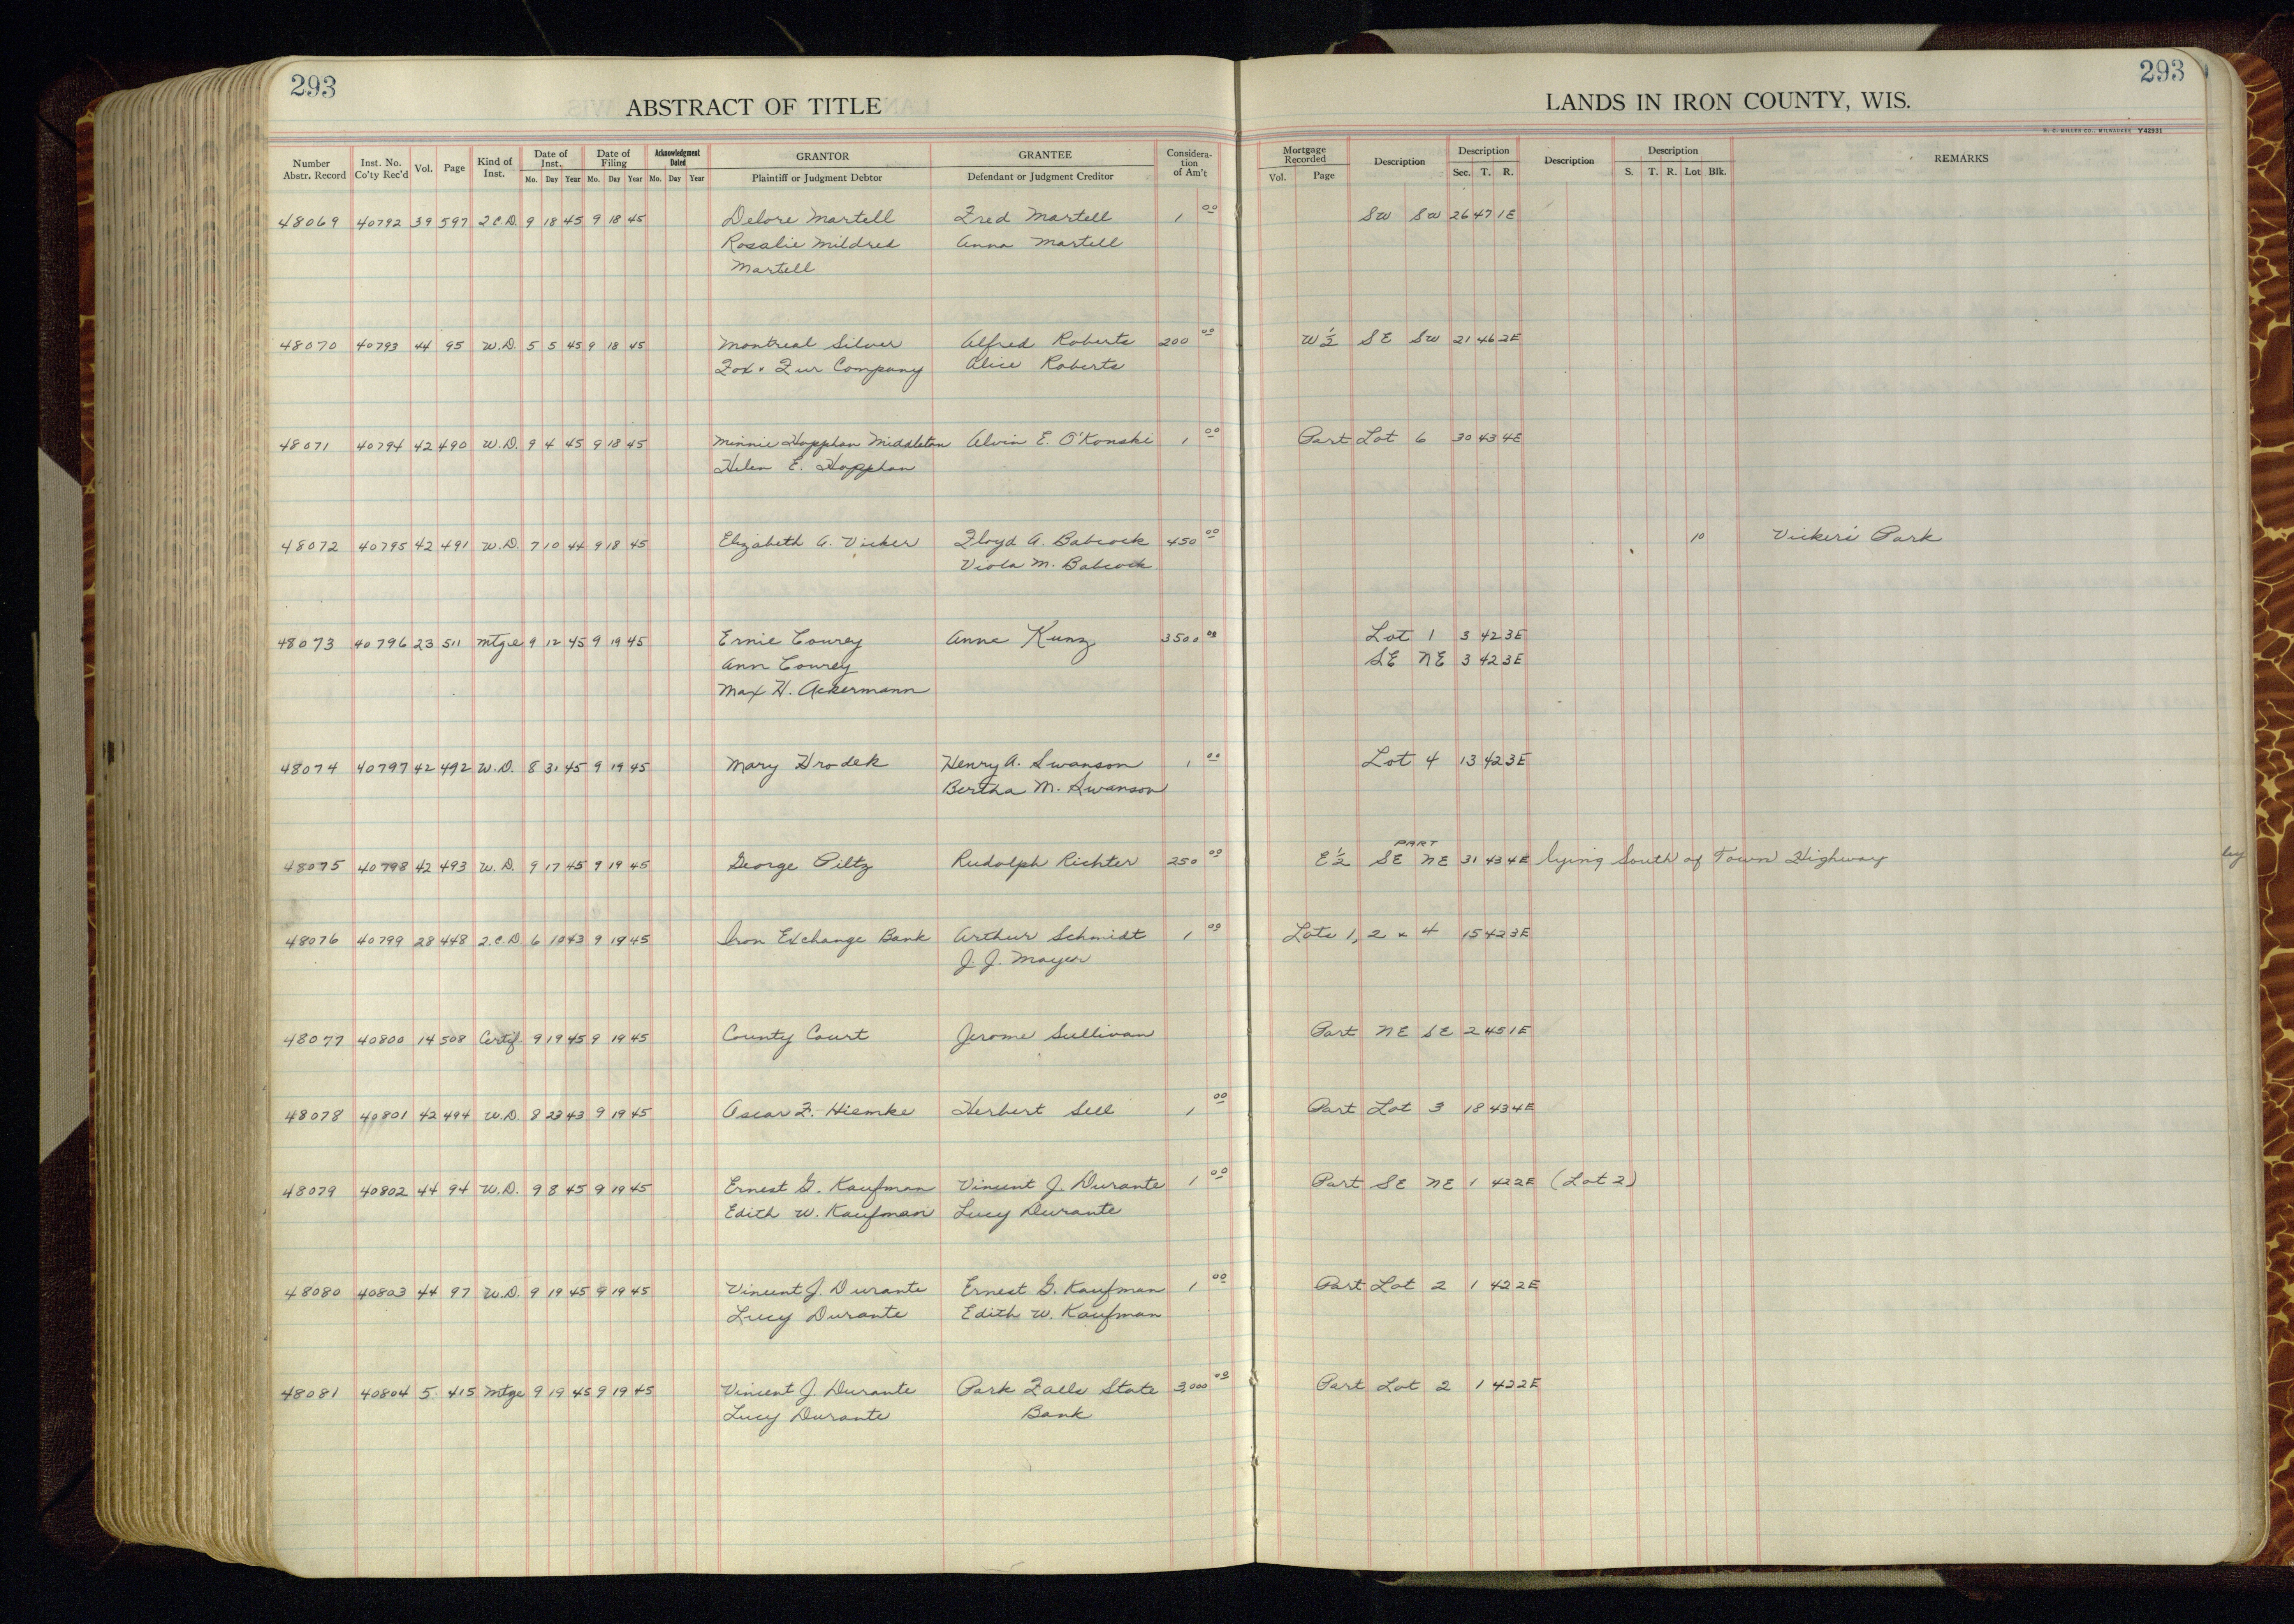 293
ABSTRACT OF TITLE
293
LANDS IN IRON COUNTY, WIS.
H. C. MILLER CO., MILWAUKEE Y42931
Number Abstr. Record Inst. No. Co'ty Rec'd Vol. Page Kind of Inst. Date of Inst. Mo. Day Year Date of Filing Mo. Day Year Acknowledgment Dated Mo. Day Year GRANTOR Plaintiff or Judgment Debtor GRANTEE Defendant or Judgment Creditor Considera- tion of Am't Mortgage Recorded Vol. Page Description Description Sec. T. R. Description Description S. T. R. Lot Blk. REMARKS
48069 40792 39 597 2 C.D. 9 18 45 9 18 45 Delore Martell Fred Martell 1 00 SW SW 26 47 1E
Rosalie Mildred Anna Martell
Martell
48070 40793 44 95 W.D. 5 5 45 9 18 45 Montreal Silver Alfred Roberts 200 00 W½ SE SW 21 46 2E
Fox & Fur Company Alice Roberts
48071 40794 42 490 W.D. 9 4 45 9 18 45 Minnie Hopphan Middleton Alvin E. O'Konski 1 00 Part Lot 6 30 43 4E
Helen E. Hopphan
48072 40795 42 491 W.D. 7 10 44 9 18 45 Elizabeth A. Vicker Floyd A. Babcock 450 00 10 Vicker's Park
Viola M. Babcock
48073 40796 23 511 Mtge 9 12 45 9 19 45 Ernie Courey Anne Kunz 3500 00 Lot 1 3 42 3E
Ann Courey SE NE 3 42 3E
Max H. Ackermann
48074 40797 42 492 W.D. 8 31 45 9 19 45 Mary Hrodek Henry A. Swanson 1 00 Lot 4 13 42 3E
Bertha M. Swanson
PART
48075 40798 42 493 W.D. 9 17 45 9 19 45 George Piltz Rudolph Richter 250 00 E½ SE NE 31 43 4E lying South of Town Highway
48076 40799 28 448 2.C.D 6 10 43 9 19 45 Iron Exchange Bank Arthur Schmidt 1 00 Lots 1, 2 & 4 15 42 3E
J. J. Mayer
48077 40800 14 508 Certif. 9 19 45 9 19 45 County Court Jerome Sullivan Part NE SE 2 45 1E
48078 40801 42 494 W.D. 8 23 43 9 19 45 Oscar F. Hiemke Herbert Sell 1 00 Part Lot 3 18 43 4E
48079 40802 44 94 W.D. 9 8 45 9 19 45 Ernest G. Kaufman Vincent J. Durante 1 00 Part SE NE 1 42 2E (Lot 2)
Edith W. Kaufman Lucy Durante
48080 40803 44 97 W.D. 9 19 45 9 19 45 Vincent J. Durante Ernest G. Kaufman 1 00 Part Lot 2 1 42 2E
Lucy Durante Edith W. Kaufman
48081 40804 5 415 Mtge 9 19 45 9 19 45 Vincent J Durante Park Falls State 3,000 00 Part Lot 2 1 42 2E
Lucy Durante Bank